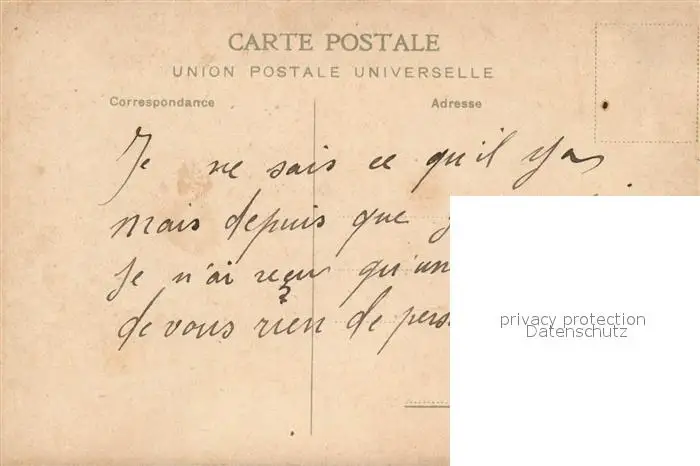 CARTE POSTALE
UNION POSTALE UNIVERSELLE
Correspondance
Adresse
Je ne sais ce qu'il y a
mais depuis que
je n'ai reçu qu'un
de vous rien de pers
privacy protection
Datenschutz